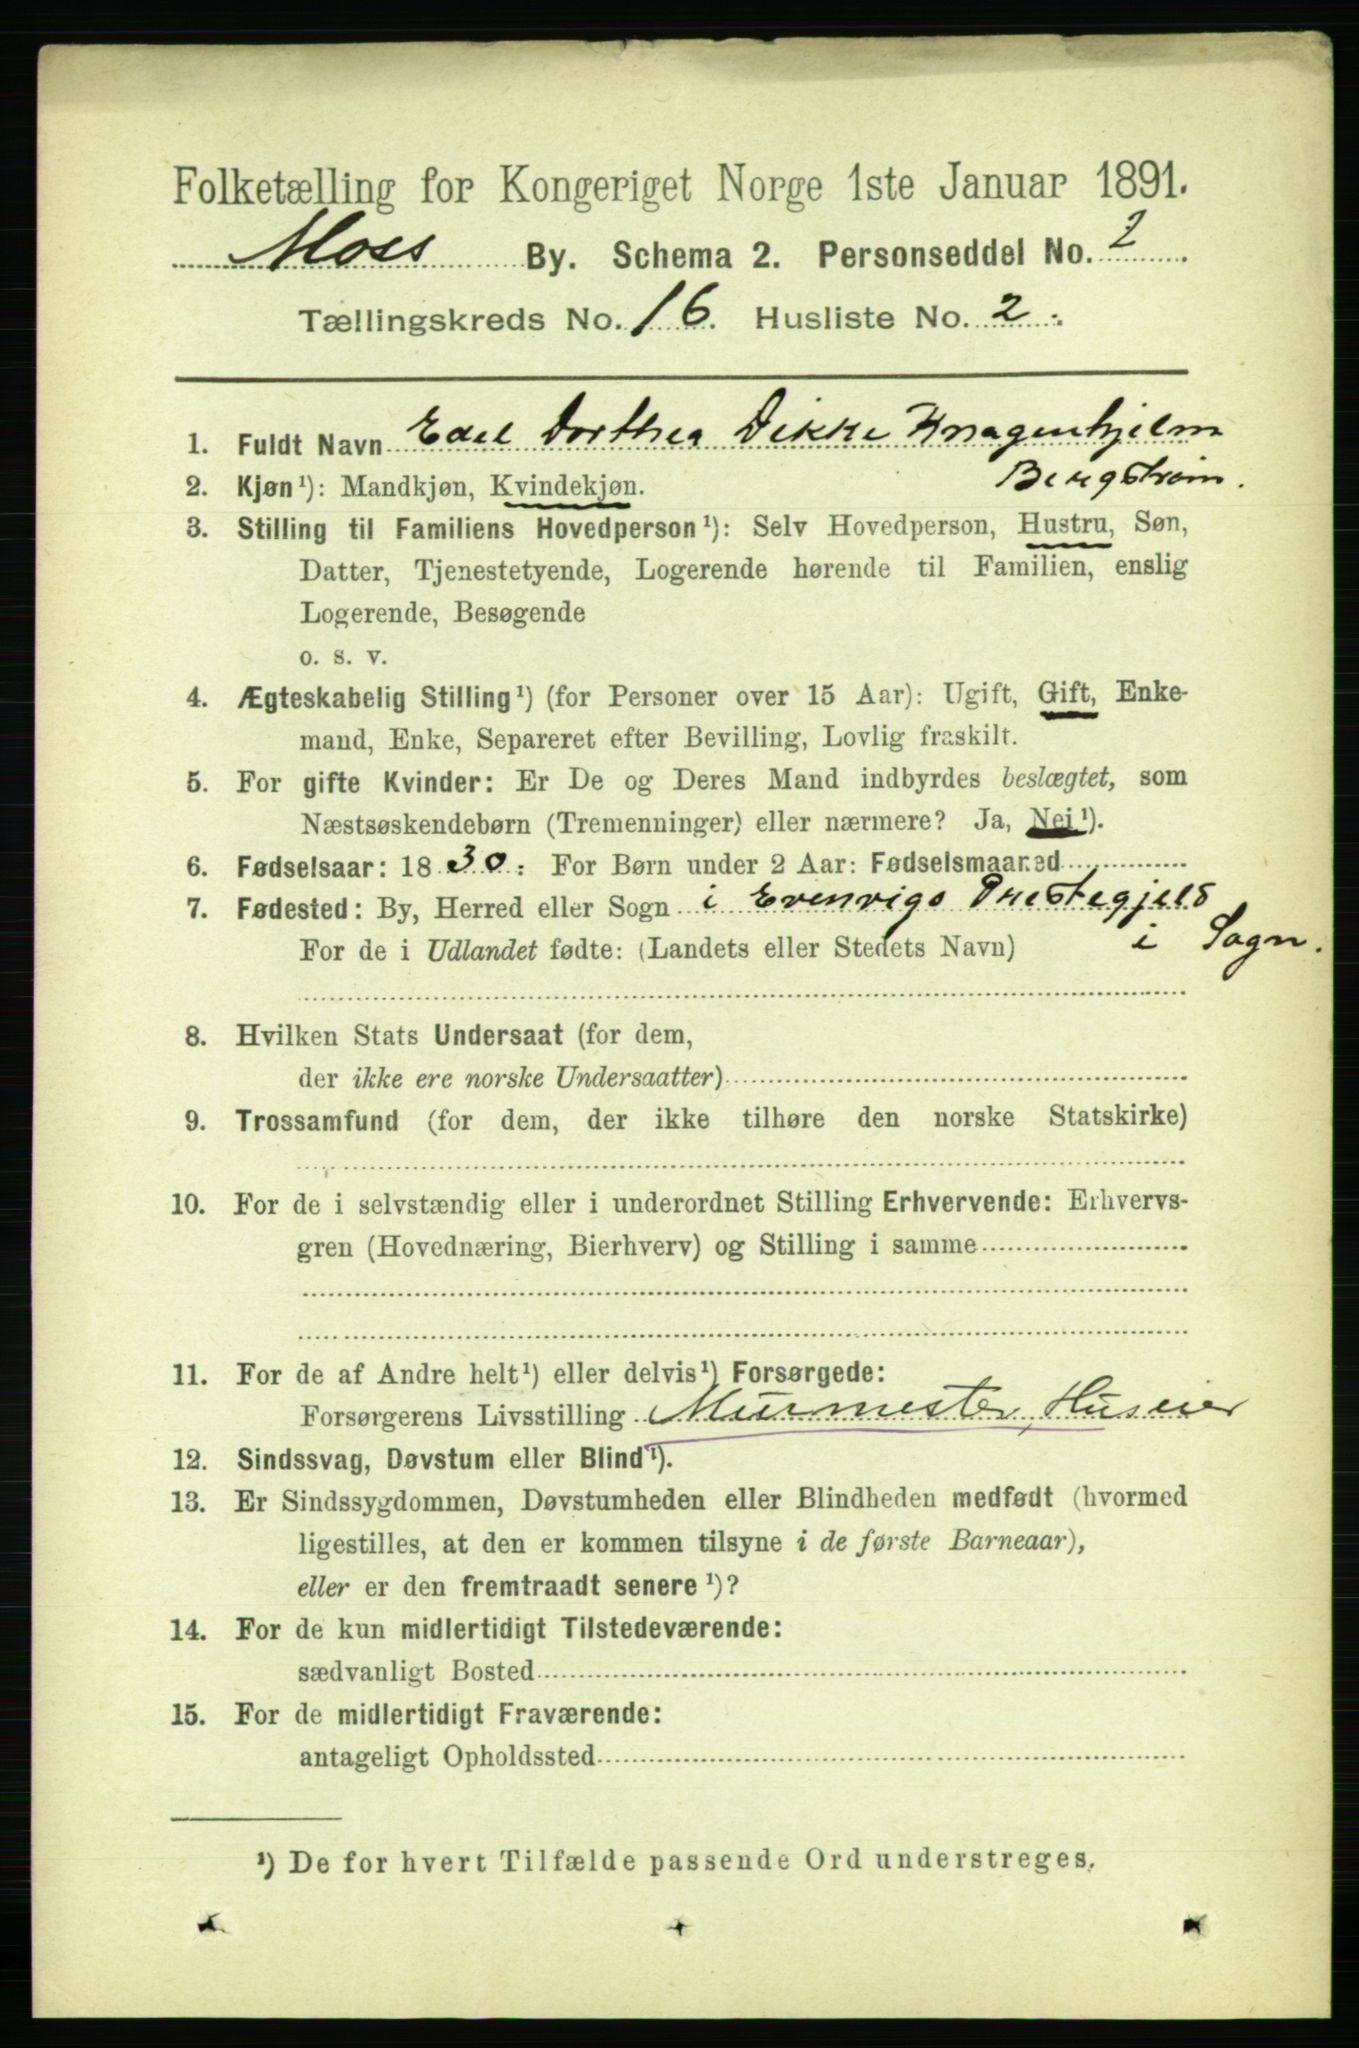 Folketælling for Kongeriget Norge 1ste Januar 1891.
Moss By. Schema 2. Personseddel No. 2
Tællingskreds No. 16. Husliste No. 2.
1. Fuldt Navn Edel Dorthea Dekke Knagenhjelm
Bergstrøm.
2. Kjøn ¹): Mandkjøn, Kvindekjøn.
3. Stilling til Familiens Hovedperson ¹): Selv Hovedperson, Hustru, Søn,
Datter, Tjenestetyende, Logerende hørende til Familien, enslig
Logerende, Besøgende
o. s. v.
4. Ægteskabelig Stilling ¹) (for Personer over 15 Aar): Ugift, Gift, Enke-
mand, Enke, Separeret efter Bevilling, Lovlig fraskilt.
5. For gifte Kvinder: Er De og Deres Mand indbyrdes beslægtet, som
Næstsøskendebørn (Tremenninger) eller nærmere? Ja, Nei ¹).
6. Fødselsaar: 1830. For Børn under 2 Aar: Fødselsmaaned
7. Fødested: By, Herred eller Sogn i Evenvigs Prestegjeld
For de i Udlandet fødte: (Landets eller Stedets Navn) i Sogn.
8. Hvilken Stats Undersaat (for dem,
der ikke ere norske Undersaatter)
9. Trossamfund (for dem, der ikke tilhøre den norske Statskirke)
10. For de i selvstændig eller i underordnet Stilling Erhvervende: Erhvervs-
gren (Hovednæring, Bierhverv) og Stilling i samme
11. For de af Andre helt ¹) eller delvis ¹) Forsørgede:
Forsørgerens Livsstilling Murmester, Huseier
12. Sindssvag, Døvstum eller Blind ¹).
13. Er Sindssygdommen, Døvstumheden eller Blindheden medfødt (hvormed
ligestilles, at den er kommen tilsyne i de første Barneaar),
eller er den fremtraadt senere ¹)?
14. For de kun midlertidigt Tilstedeværende:
sædvanligt Bosted
15. For de midlertidigt Fraværende:
antageligt Opholdssted
¹) De for hvert Tilfælde passende Ord understreges.